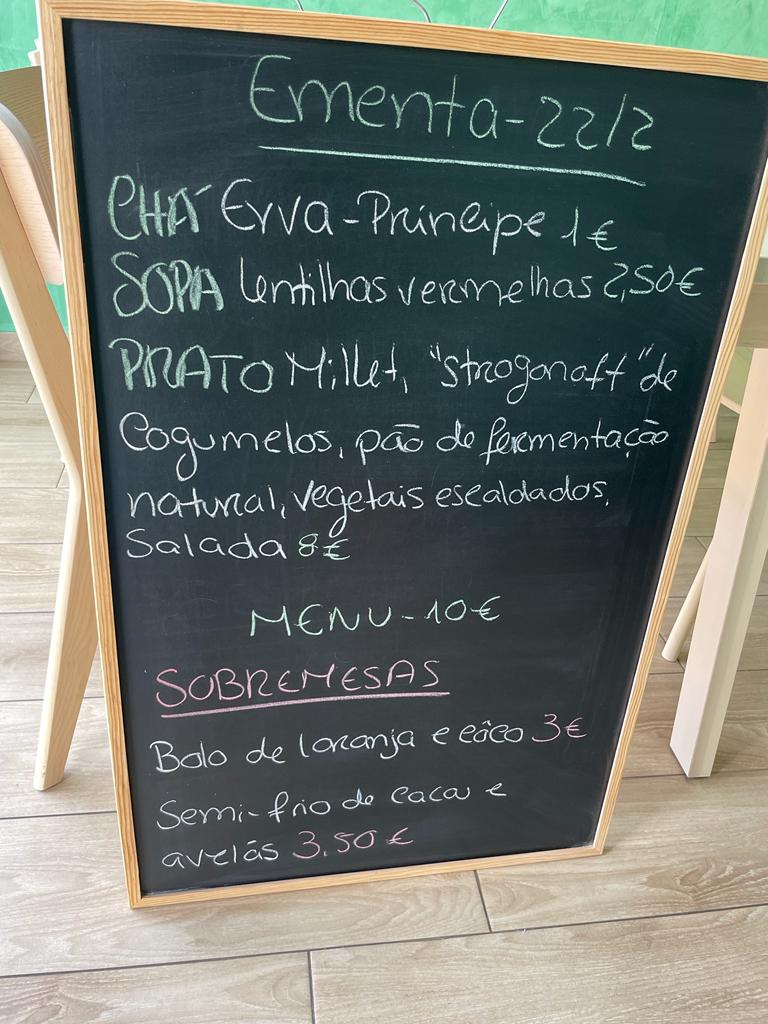 Ementa-22/2
CHÁ Erva-Príncipe 1€
SOPA lentilhas vermelhas 2,50€
PRATO Millet, "strogonoff" de
Cogumelos, pão de fermentação
natural, vegetais escaldados,
Salada 8€
MENU-10€
SOBREMESAS
Bolo de laranja e côco 3€
Semi-frio de cacau e
avelãs 3,50€